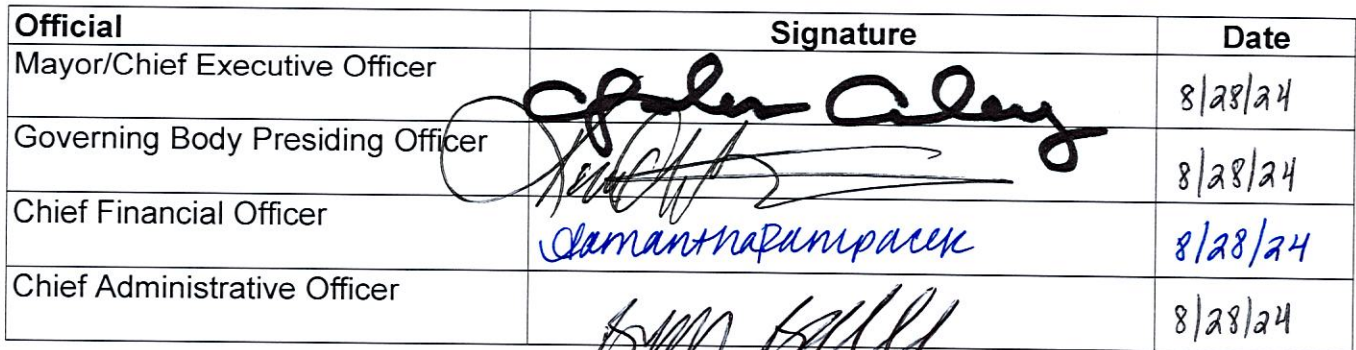 Official Signature Date
Mayor/Chief Executive Officer 8/28/24
Governing Body Presiding Officer 8/28/24
Chief Financial Officer Samantha Rampacek 8/28/24
Chief Administrative Officer 8/28/24